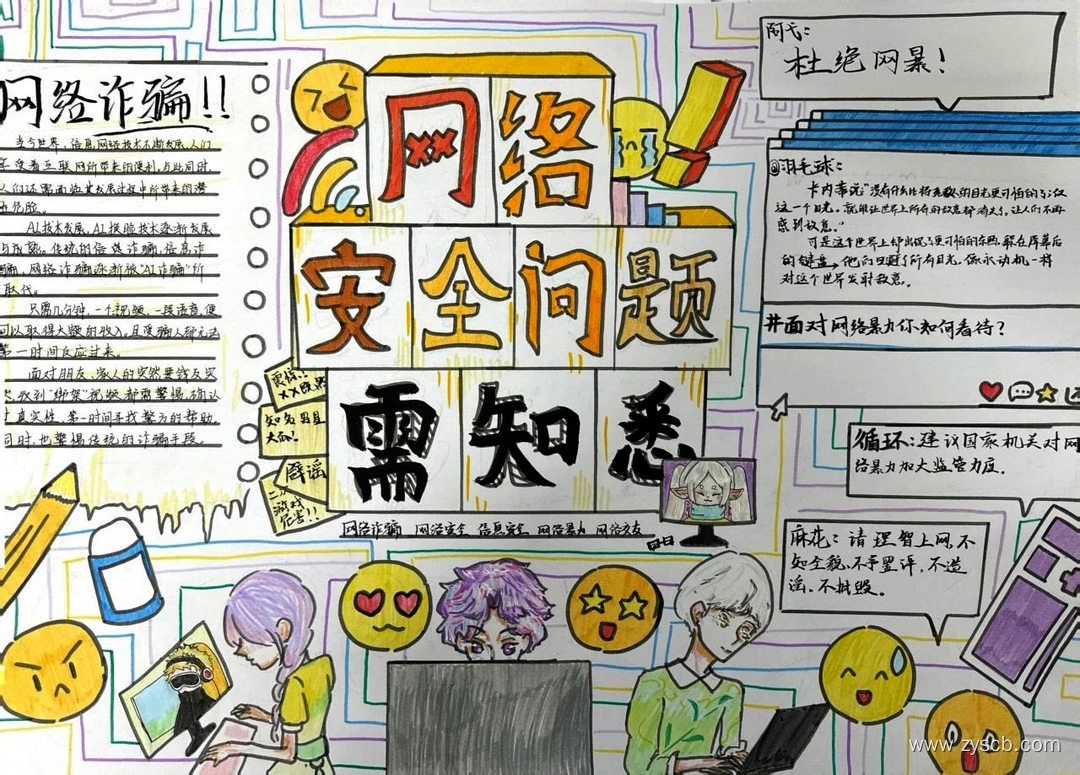 网络诈骗!!
当今世界，信息网络技术不断发展，人们
受着互联网所带来的便利，与此同时
人们还需面临其发展过程中所带来的潜
危险。
AI技术发展，AI换脸技术逐渐发展
与成熟。传统的信息诈骗、信息诈
骗，网络诈骗逐渐被"AI诈骗"所
取代。
只需几分钟，一个视频，一段语音，便
可以取得大额的收入，且受骗人却无法
第一时间反应过来。
面对朋友、家人的突然要钱及突
收到"绑架"视频都需警惕，确认
真实性，第一时间寻找警方的帮助。
同时也警惕传统的诈骗手段。
网络
安全问题
需知悉
震惊!!
知名男星
大曲!
辟谣
游戏
危害!!
网络诈骗 网络安全 信息安全 网络暴力 网络交友
杜绝网暴!
@羽毛球:
卡内蒂说:"没有什么比将无数人的目光更可怕的了
这一个目光。就能让世界上所有的敌意都消失了，让人们不再
感到敌意。"
可是这个世界上却出现了更可怕的东西，躲在屏幕后
的键盘 他们回避了所有目光，像永动机一样
对这个世界发射敌意。
#面对网络暴力你如何看待?
循环:建议国家机关对网
络暴力加大监管力度.
麻花:请理智上网,不
知全貌,不予置评,不造
谣,不诋毁。
www.zyscb.com